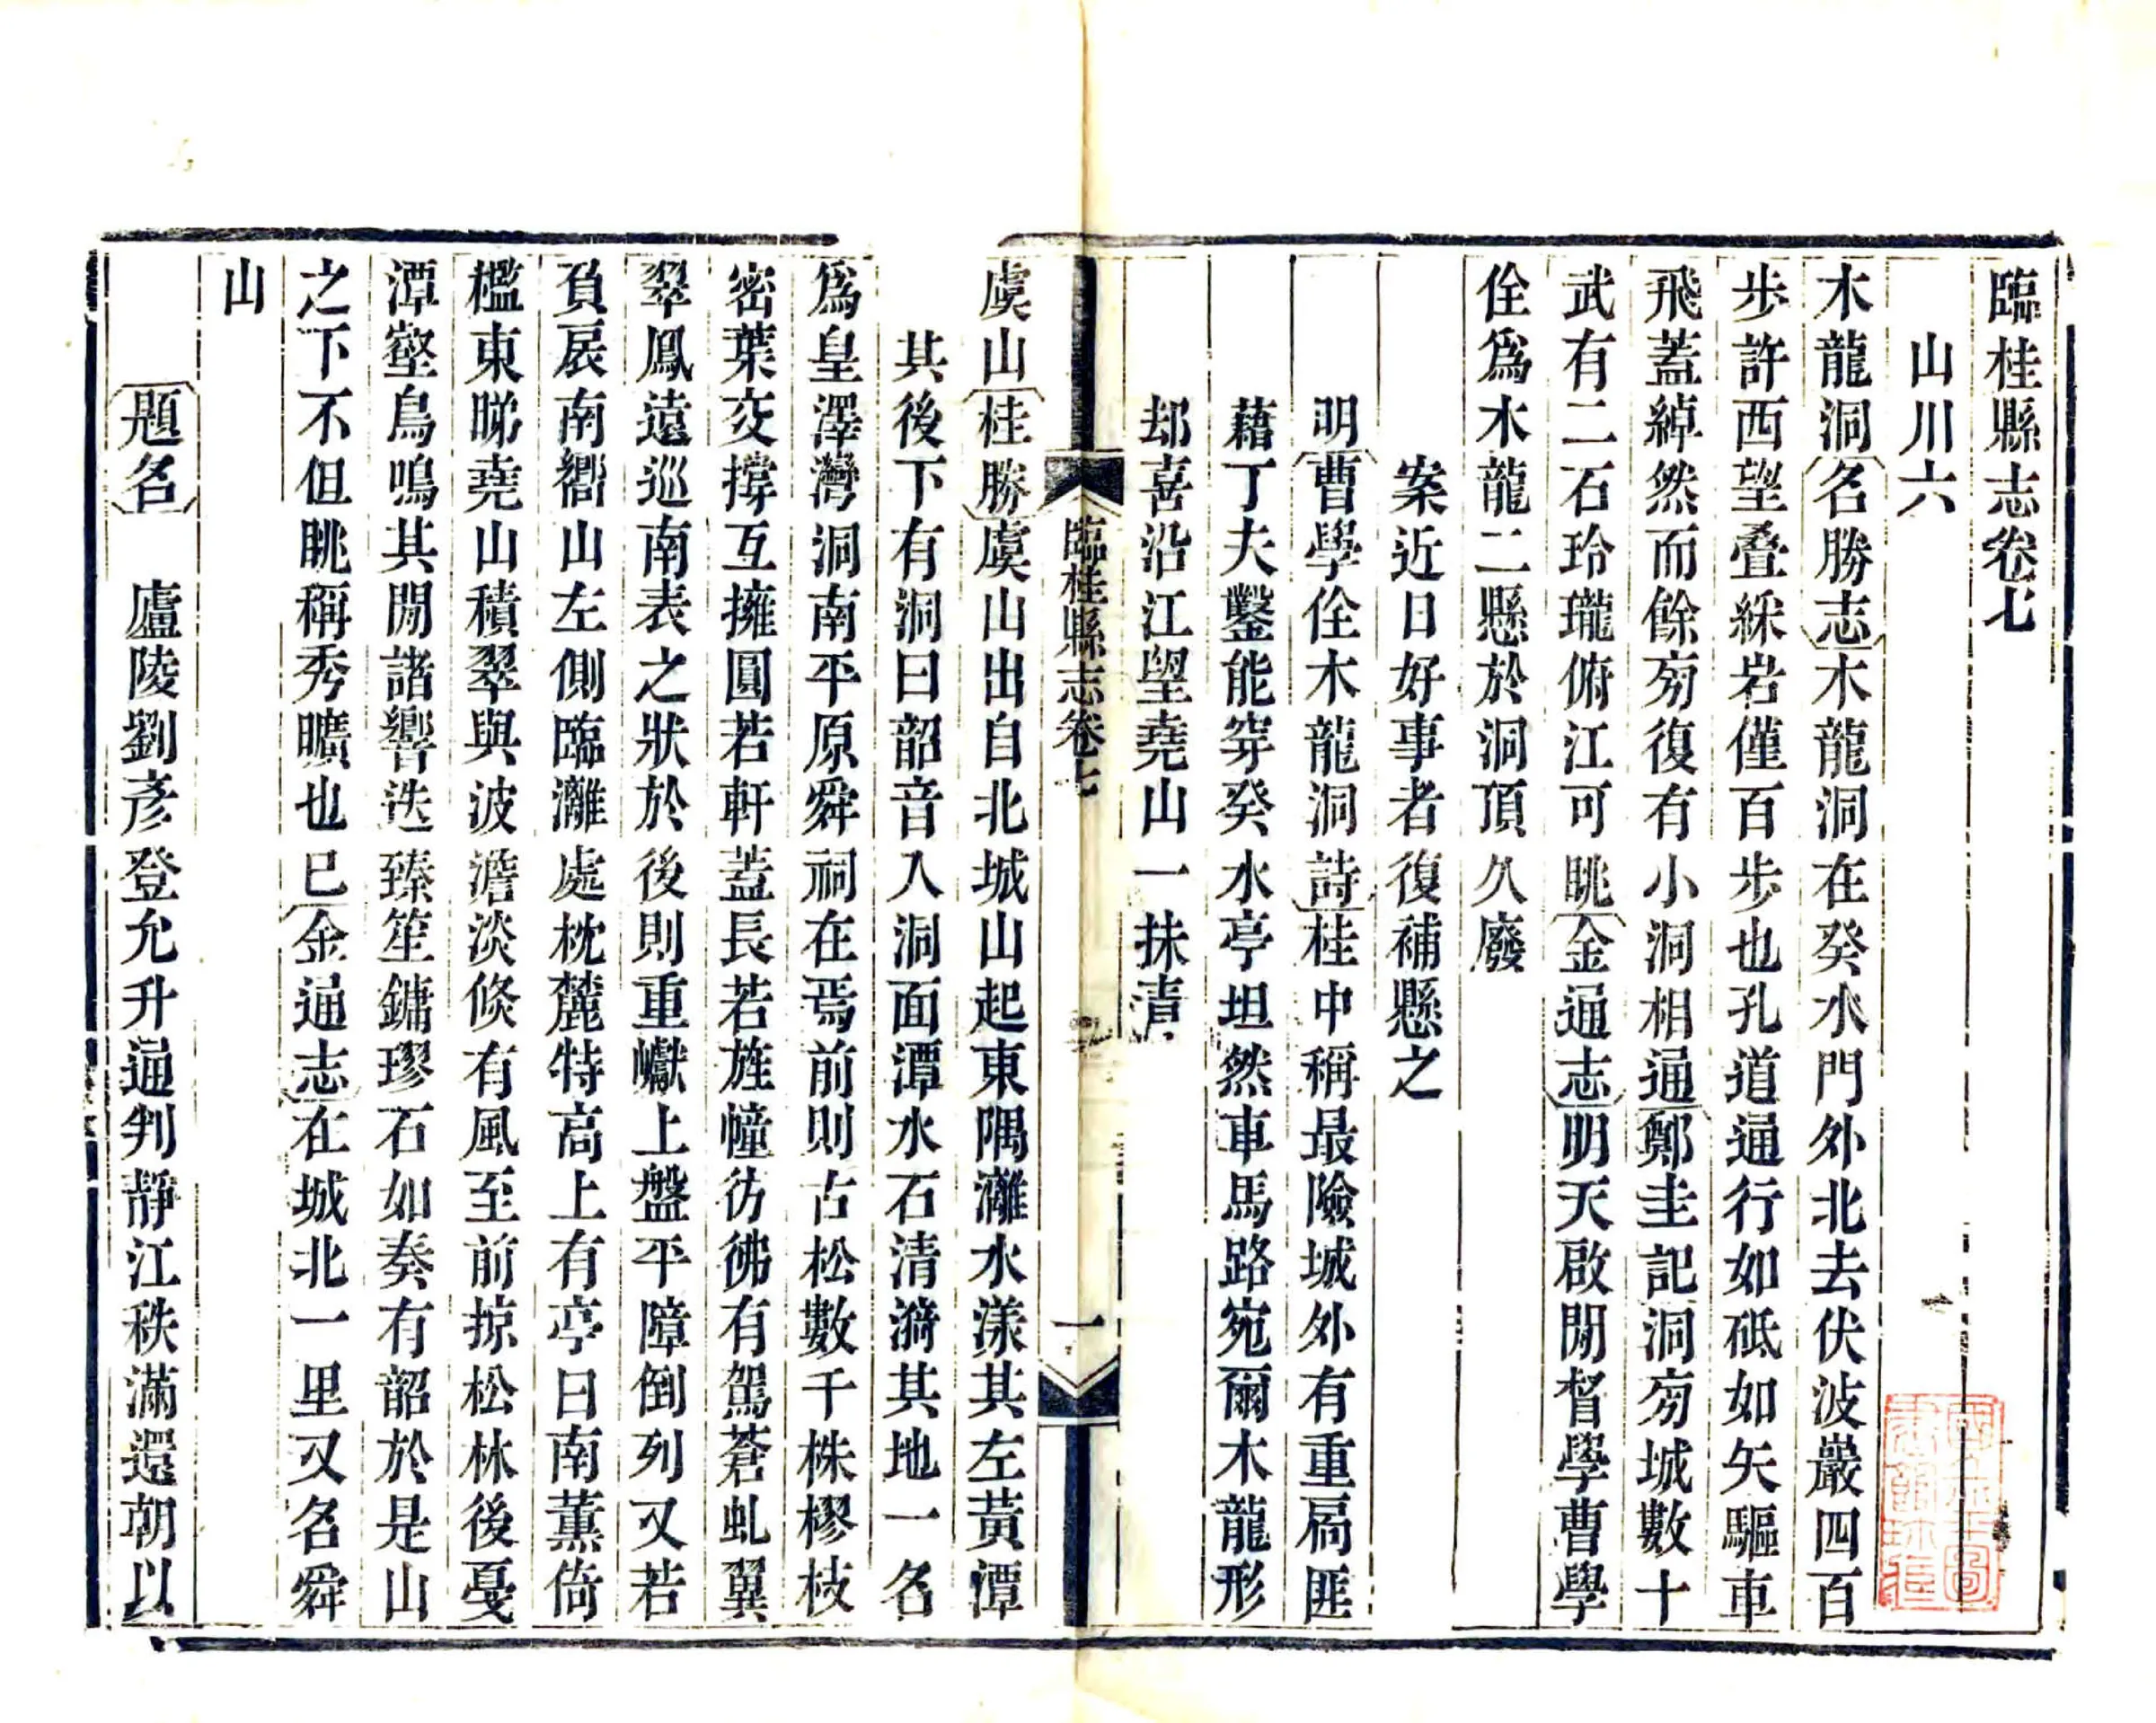 臨桂縣志卷七
山川六
木龍洞名勝志木龍洞在癸水門外北去伏波巖四百
步許西望疊綵岩僅百步也孔道通行如砥如矢驅車
飛蓋綽然而餘旁復有小洞相通鄭圭記洞旁城數十
武有二石玲瓏俯江可眺金通志明天啟閒督學曹學
佺爲木龍二懸於洞頂久廢
案近日好事者復補懸之
明曹學佺木龍洞詩桂中稱最險城外有重扃匪
藉丁夫鑿能穿癸水亭坦然車馬路宛爾木龍形
却喜沿江望堯山一抹青
臨桂縣志卷七
一
虞山桂勝虞山出自北城山起東隅灕水漾其左黃潭
其後下有洞曰韶音入洞面潭水石清漪其地一名
爲皇澤灣洞南平原舜祠在焉前則古松數千株樛枝
密葉交撐互擁圓若軒蓋長若旌幢彷彿有駕蒼虬翼
翠鳳遠巡南表之狀於後則重巘上盤平障倒列又若
負扆南嚮山左側臨灕處枕麓特高上有亭曰南薰倚
檻東睇堯山積翠與波澹淡倏有風至前掠松林後戞
潭壑鳥鳴其閒諸響迭臻笙鏞璆石如奏有韶於是山
之下不但眺稱秀曠也已金通志在城北一里又名舜
山
題名 廬陵劉彥登允升通判靜江秩滿還朝以